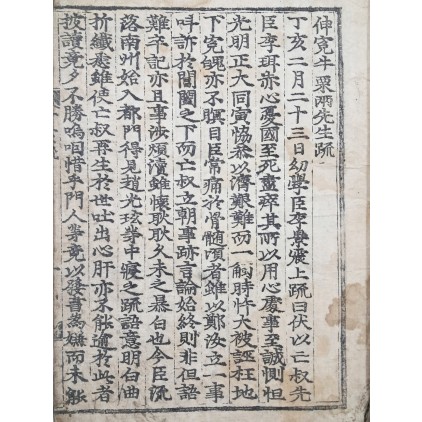 伸寃牛栗兩先生疏
丁亥二月二十三日幼學臣李景震上疏曰伏以亡叔先
臣李珥赤心憂國至死盡瘁其所以用心處事至誠惻怛
光明正大同寅恊恭以濟艱難而一觸時忤大被誣枉地
下寃魄亦不瞑目臣常痛於骨髓頃者雖以鄭汝立一事
呌訴於閽闔之下而亡叔立朝事跡言論始終則非但語
難卒記亦且事涉煩瀆雖懷耿耿久未之暴白也今臣流
落南州始入都門得見趙光玹等中寢之疏語意明白曲
折纖悉雖使亡叔再生於世吐出心肝亦不能逾於此者
披讀竟夕不勝嗚咽惜乎門人等竟以發書為嫌而未能